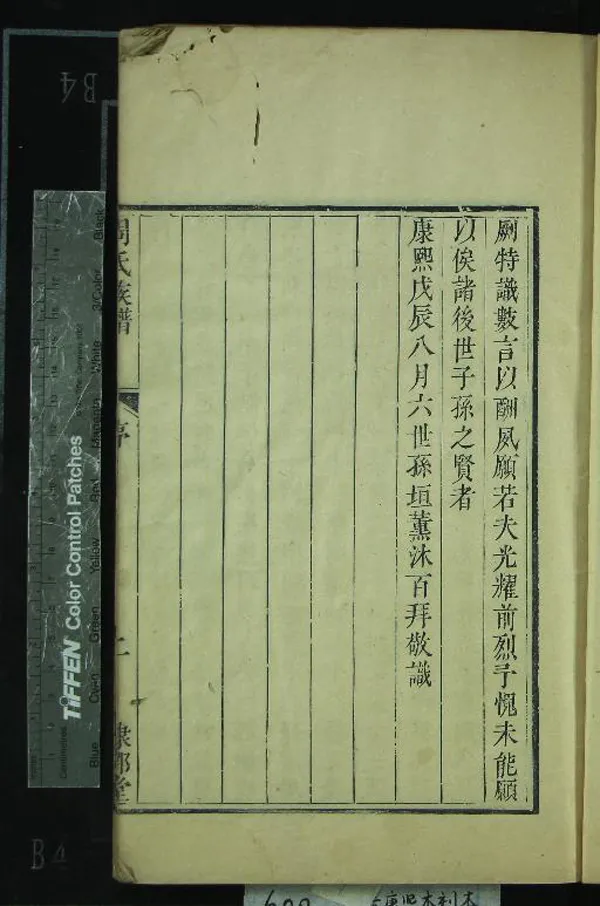 厥特識數言以酬夙願若夫光耀前烈予愧未能願
以俟諸後世子孫之賢者
康熙戊辰八月六世孫垣薰沐百拜敬識
周氏族譜
序
TIFFEN Color Control Patches
Blue
Cyan
Green
Yellow
Red
Magenta
White
3/Color
Black
B4
B4